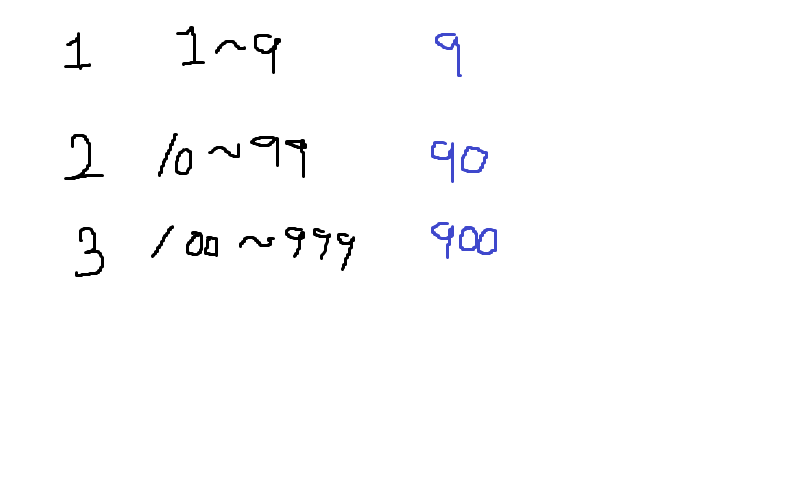 1 1~9 9
2 10~99 90
3 100~999 900